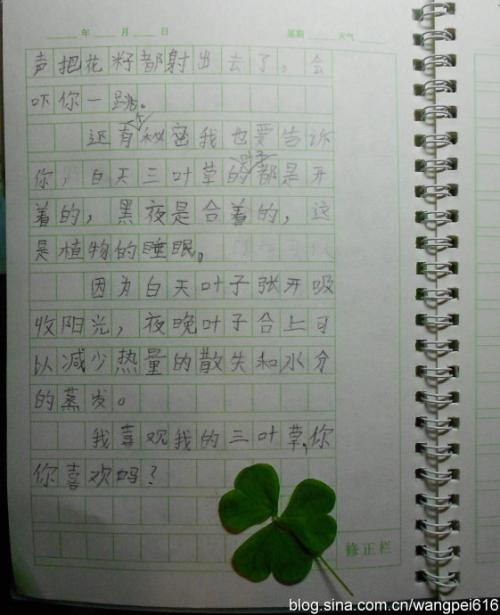 年 月 日 星期 天气
声把花籽都射出去了，会
吓你一跳。
还有个秘密我也要告诉
你，白天三叶草的叶子都是开
着的，黑夜是合着的，这
是植物的睡眠。
因为白天叶子张开吸
收阳光，夜晚叶子合上可
以减少热量的散失和水分
的蒸发。
我喜欢我的三叶草,你
你喜欢吗？
修正栏
blog.sina.com.cn/wangpei616